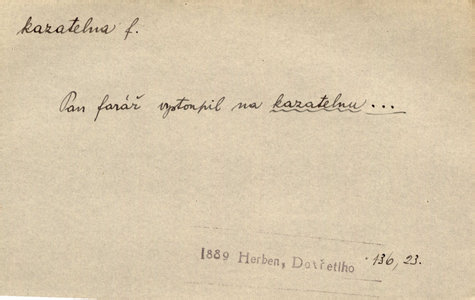 kazatelna f.
Pan farář vystoupil na kazatelnu ...
1889 Herben, Do třetího 136, 23.